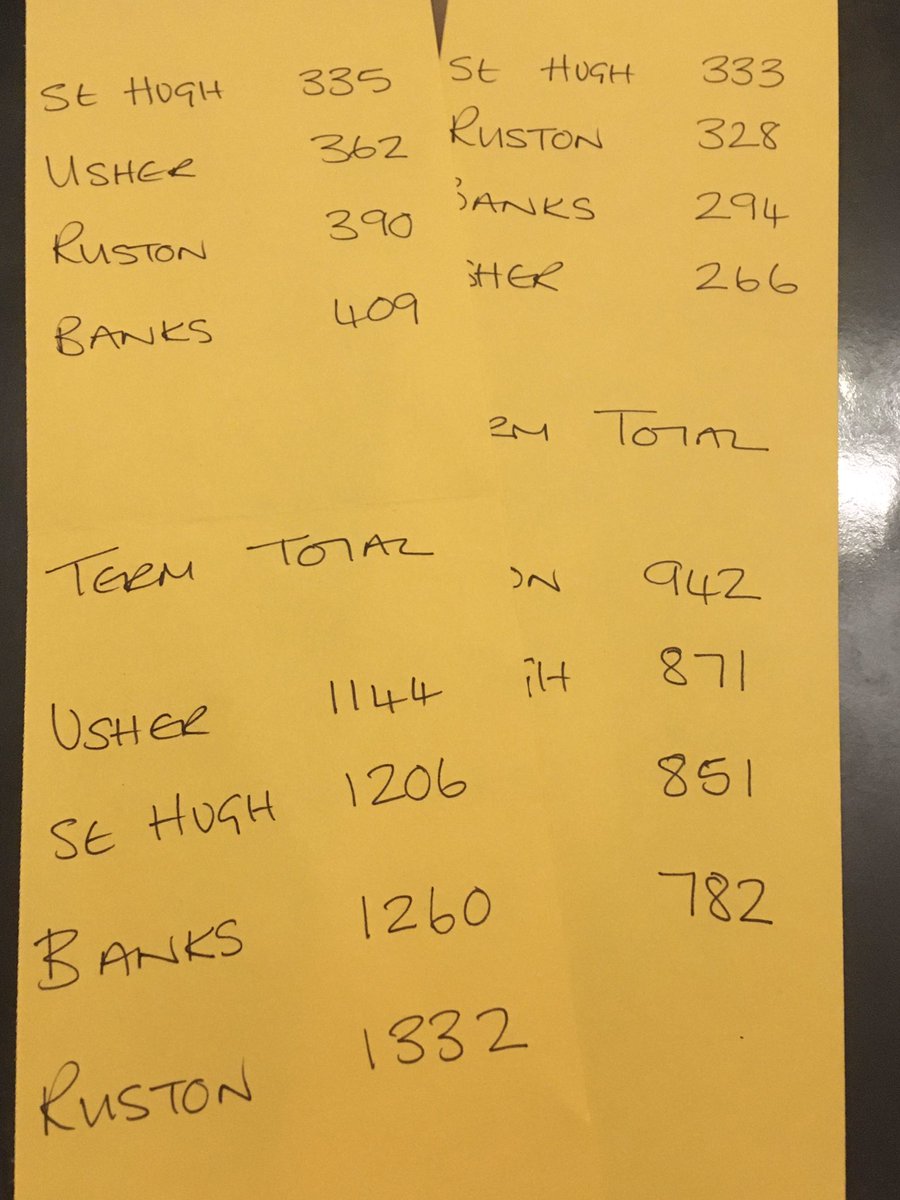 St HUGH 335
USHER 362
RUSTON 390
BANKS 409
TERM TOTAL
USHER 1144
St HUGH 1206
BANKS 1260
RUSTON 1332
St HUGH 333
RUSTON 328
ANKS 294
HER 266
M TOTAL
N 942
H 871
851
782